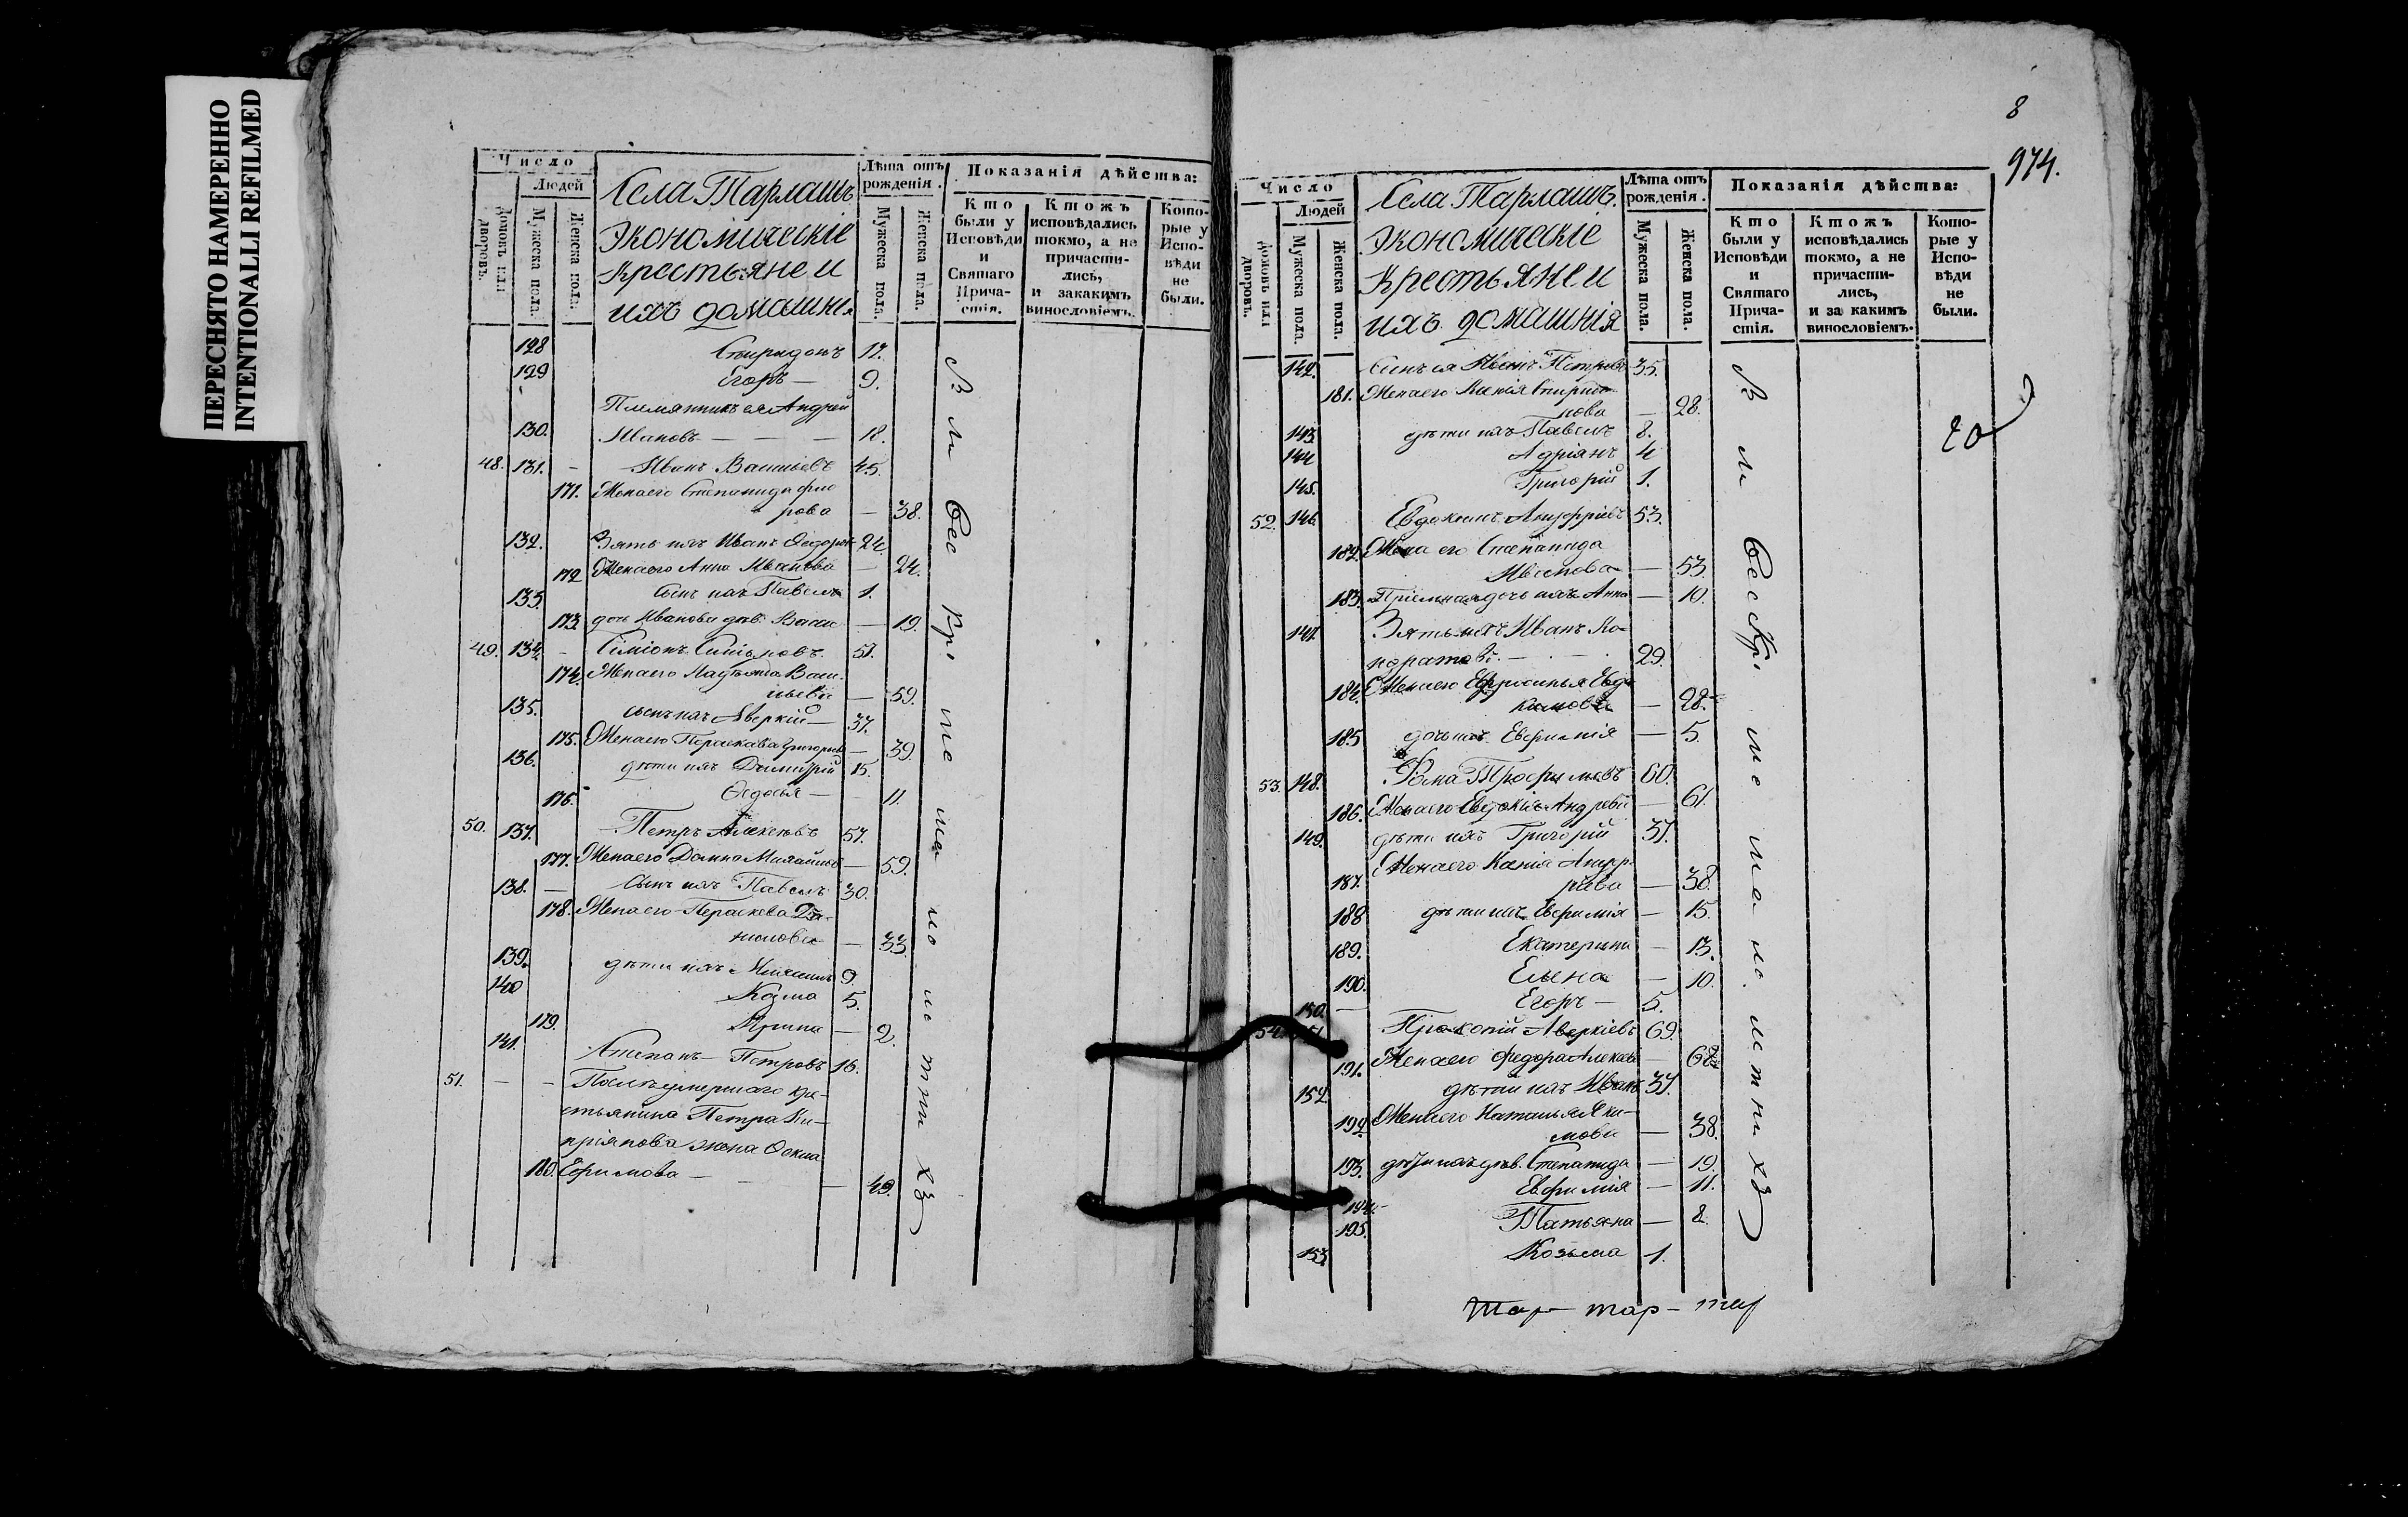 ПЕРЕСНЯТО НАМЕРЕННО
INTENTIONALLI REFILMED
Число
Людей
Домовъ или дворовъ.
Мужеска пола.
Женска пола.
Села Тарлашъ
Экономическіе
крестьяне и
ихъ домашнія
Лѣта отъ рожденія.
Мужеска пола.
Женска пола.
Показанія дѣйства:
Кто были у Исповѣди и Святаго Причастія.
Ктожъ исповѣдались токмо, а не причастились, и закакимъ винословіемъ.
Которые у Исповѣди не были.
128 Спиридонъ 12.
129 Егоръ — 9.
Племянникъ ея Андрей
130. Ивановъ — — — 18.
48. 131. — Иванъ Васильевъ 45.
171. Жена его Степанида
рова — 38.
132. Зять ихъ Иванъ 24.
172 Жена его Анна Иванова — 24.
133. Сынъ ихъ Павелъ 1.
173. дочь Иванова дѣв. — 19.
49. 134. — Симіонъ 51.
174. Жена его Надѣжда Васи-
льева — 59.
135. сынъ ихъ Аверкій — 37.
175. Жена его Пераскева Григорьев — 39.
136. дѣти ихъ Димитрій 15.
176. Ѳедосья — 11.
50. 137. — Петръ Алексѣевъ 57.
177. Жена его Домна Михайлов — 59.
138. — Сынъ ихъ Павелъ 30.
178. Жена его Пераскева Да-
нилова — 33.
139. дѣти ихъ 9.
140 Козма 5.
179. Ирина — 2.
141. Степанъ Петровъ 16.
51. — — Послѣ умершаго кре-
стьянина Петра Ки-
пріянова жена
180. Ефимова — — — 49.
8
974.
Число
Людей
Домовъ или дворовъ.
Мужеска пола.
Женска пола.
Села Тарлашъ.
Экономическіе
крестьяне и
ихъ домашнія
Лѣта отъ рожденія.
Мужеска пола.
Женска пола.
Показанія дѣйства:
Кто были у Исповѣди и Святаго Причастія.
Ктожъ исповѣдались токмо, а не причастились, и за какимъ винословіемъ.
Которые у Исповѣди не были.
142. Сынъ ея Иванъ Петровъ 35.
181. Жена его Ксенія Спиридо-
нова — 28.
143. дѣти ихъ Павелъ 8.
144 Адріянъ 4
145. Григорій 1.
52. 146. Евдокимъ 53.
182. Жена его Степанида
Иванова — 53.
183. Пріемная дочь ихъ Анна — 10.
147. Зять ихъ Иванъ Ко-
ндратовъ — 29.
184. Жена его Ефросинья Евдо-
кимова — 28.
185 дочь ихъ Евфимія — 5.
53. 148. Ѳома Трофимовъ 60.
186. Жена его Евдокія Андреева — 61.
149. дѣти ихъ Григорій 37.
187. Жена его Ксенія
— 38.
188 дѣти ихъ Евфимія — 15.
189. Екатерина — 13.
190. Елена — 10.
150. — Егоръ — 5.
54. 151 Прокопій Аверкіевъ 69.
191. Жена его Федора Алексѣев — 68
152 дѣти ихъ Иванъ 37.
192. Жена его Наталья Яки-
мова — 38.
193. дѣти ихъ дѣв. Степанида — 19.
194. Евфимія — 11.
195. Татьяна — 8.
153. Козьма 1.